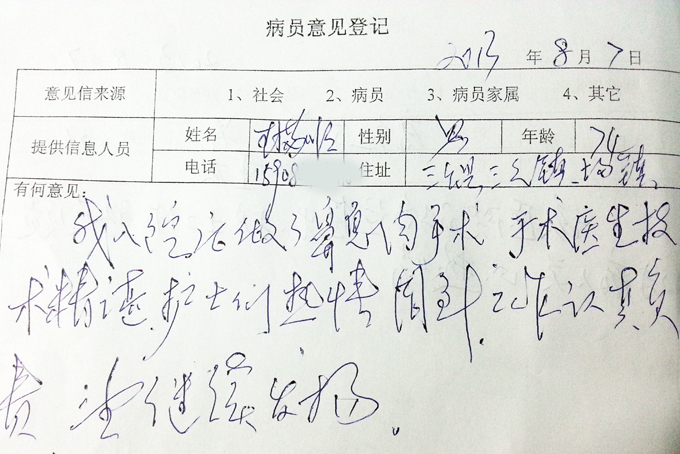 病员意见登记
2013 年 8 月 7 日
意见信来源 1、社会 2、病员 3、病员家属 4、其它
提供信息人员 姓名 性别 年龄 74
电话 15908 住址
有何意见：
我入院后做了鼻息肉手术 手术医生技
术精湛，护士们热情周到，工作认真负
责 望继续发扬。